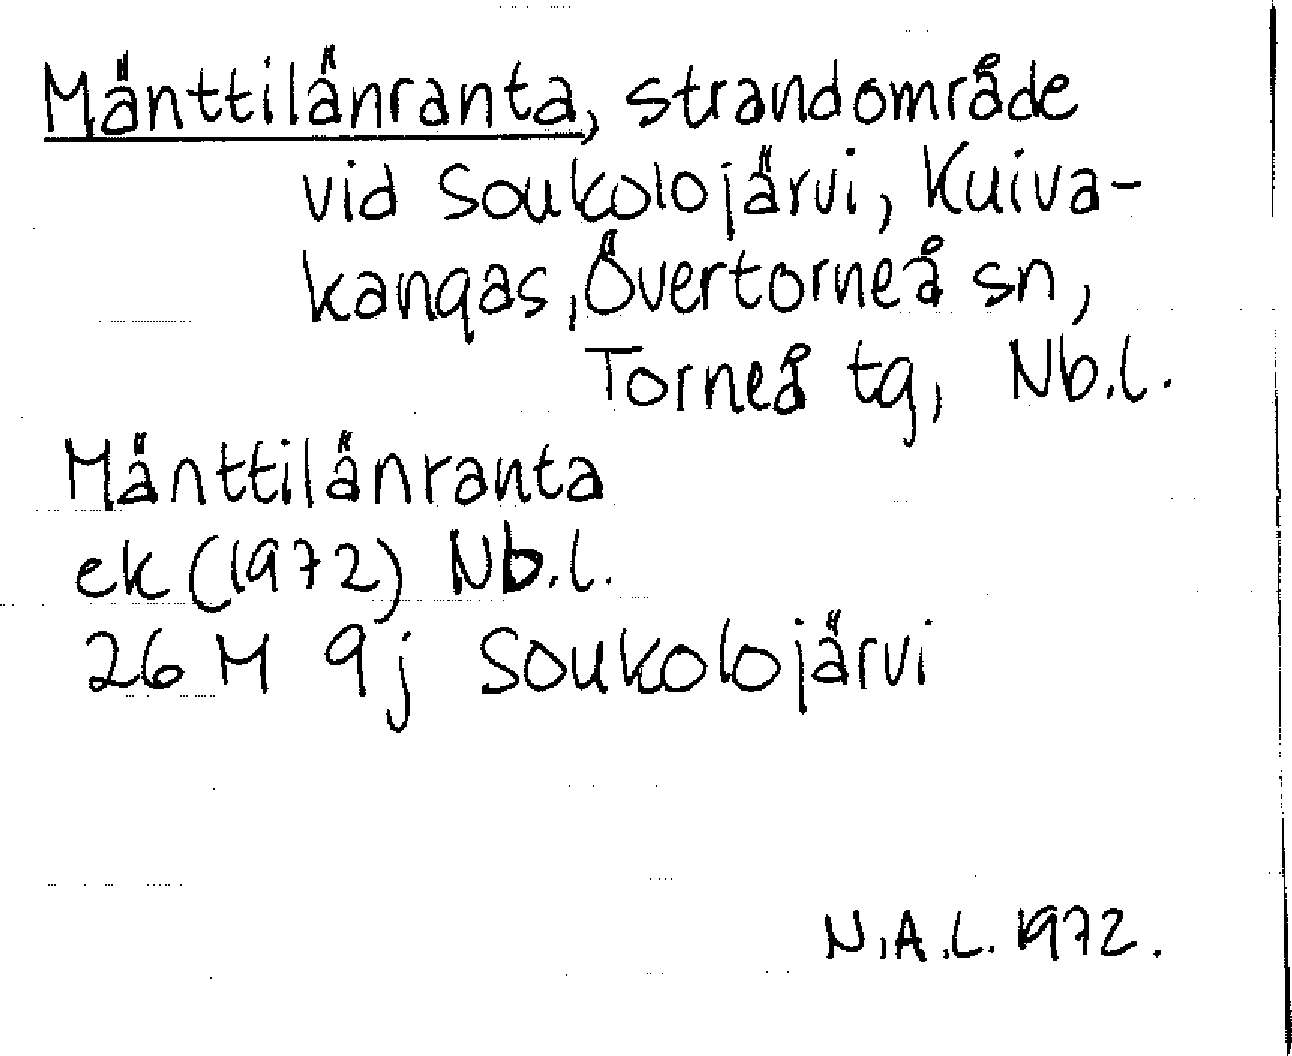 Mänttilänranta, strandområde
vid Soukolojärvi, Kuiva-
kangas, Övertorneå sn,
Torneå tg, Nb.l.
Mänttilänranta
ek (1972) Nb.l.
26 M 9j Soukolojärvi
N.A.L. 1972.